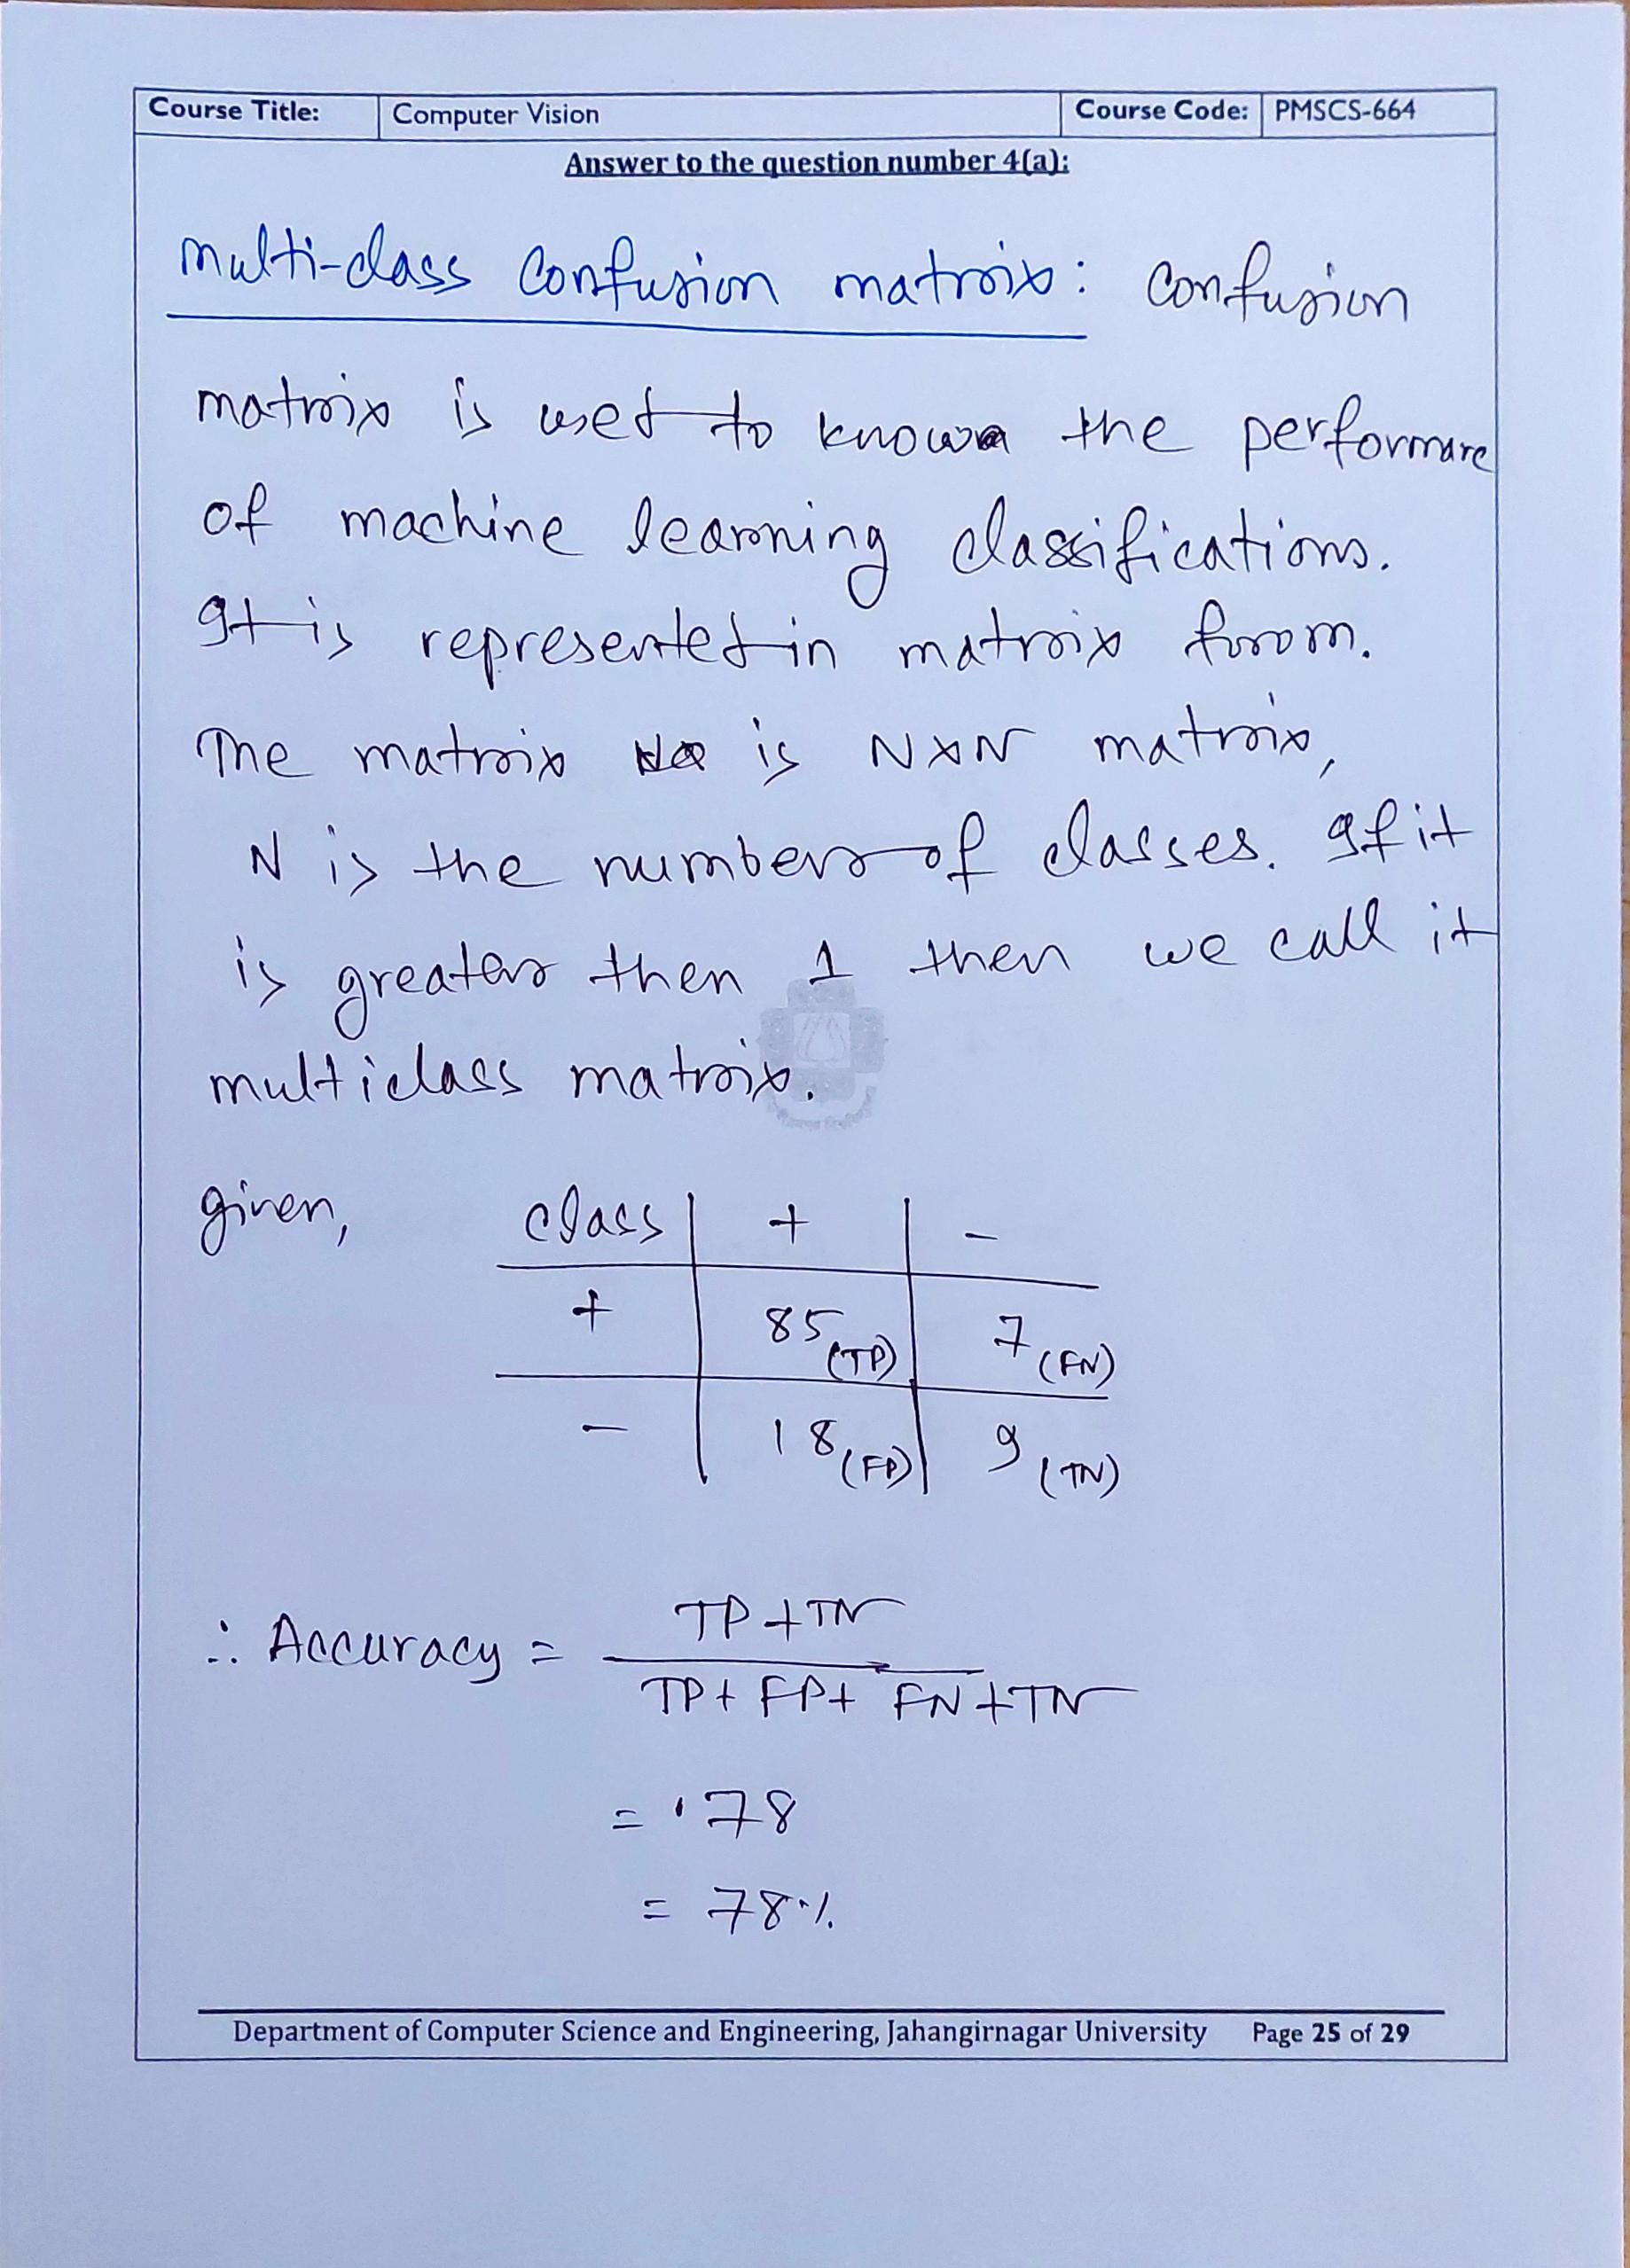 Course Title: Computer Vision Course Code: PMSCS-664
Answer to the question number 4(a):
Multi-class Confusion matrix: Confusion
matrix is used to known the performance
of machine learning classifications.
It is represented in matrix form.
The matrix is N×N matrix,
N is the number of classes. If it
is greater then 1 then we call it
multiclass matrix.
given, class + -
+ 85 (TP) 7 (FN)
- 18 (FP) 9 (TN)
∴ Accuracy = TP+TN
TP+ FP+ FN+TN
= .78
= 78%
Department of Computer Science and Engineering, Jahangirnagar University Page 25 of 29